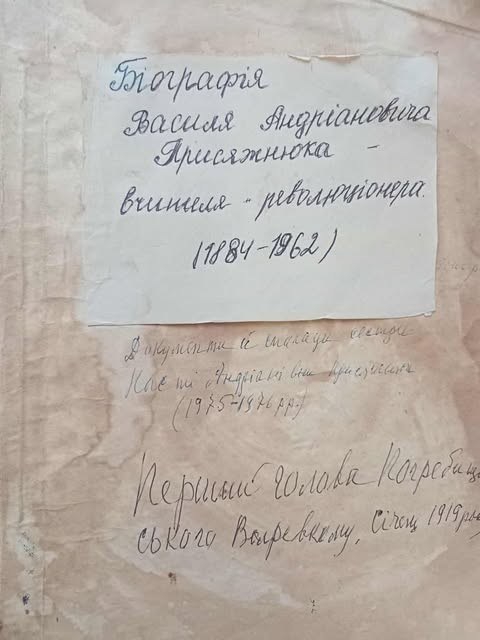 Біографія
Василя Андріановича
Присяжнюка -
вчителя - революціонера.
(1884-1962)
Документи й спогади сестри
Андріанівни Присяжнюк
(1975-1976 рр.)
Перший голова Погребищен
ського Волревкому, Січень 1919 року